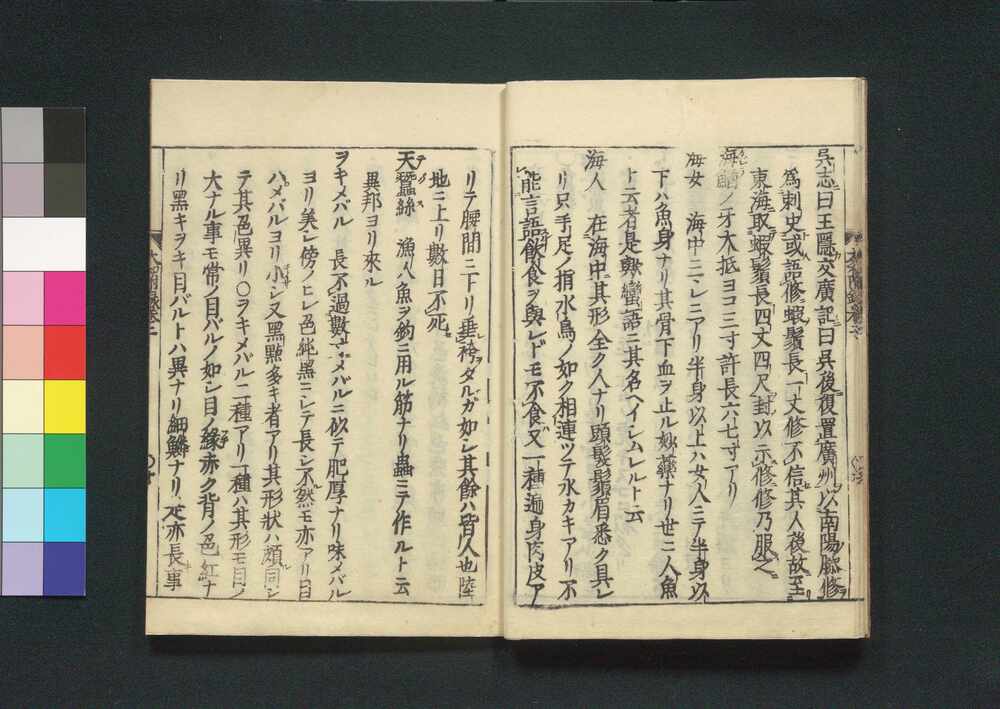 呉志曰王隱交廣記曰呉後復置廣州以南陽滕修
為刺史或語修蝦鬚長一丈修不信其人後故至
東海取蝦鬚長四丈四尺封以示修修乃服之
海鰌ノ牙木抵ヨコ三寸許長六七寸アリ
海女 海中ニマレニアリ半身以上ハ女人ニテ半身以
下ハ魚身ナリ其骨下血ヲ止ル妙藥ナリ世ニ人魚
ト云者是歟蠻語ニ其名ヘイシムレルト云
海人 在海中其形全ク人ナリ頭髮鬚眉悉ク具レ
リ只手足ノ指水鳥ノ如ク相連ツテ水カキアリ不
能言語飲食ヲ與レドモ不食又一種遍身肉皮ア
リテ腰間ニ下リ垂袴タルガ如シ其餘ハ皆人也陸
地ニ上リ數日不死
天蠶絲 漁人魚ヲ釣ニ用ル筋ナリ蟲ニテ作ルト云
異邦ヨリ來ル
ヲキメバル 長不過數寸メバルニ似テ肥厚ナリ味メバル
ヨリ美シ傍ノヒレ色純黑ニシテ長シ不然モ亦アリ目
ハメバルヨリ小シ又黑點多キ者アリ其形狀ハ頗同シ
テ其色異リ〇ヲキメバル二種アリ一種ハ其形モ目ノ
大ナル事モ常ノ目バルノ如シ目ノ緣赤ク背ノ色紅ナ
リ黑キヲキ目バルトハ異ナリ細鱗ナリ是亦長事